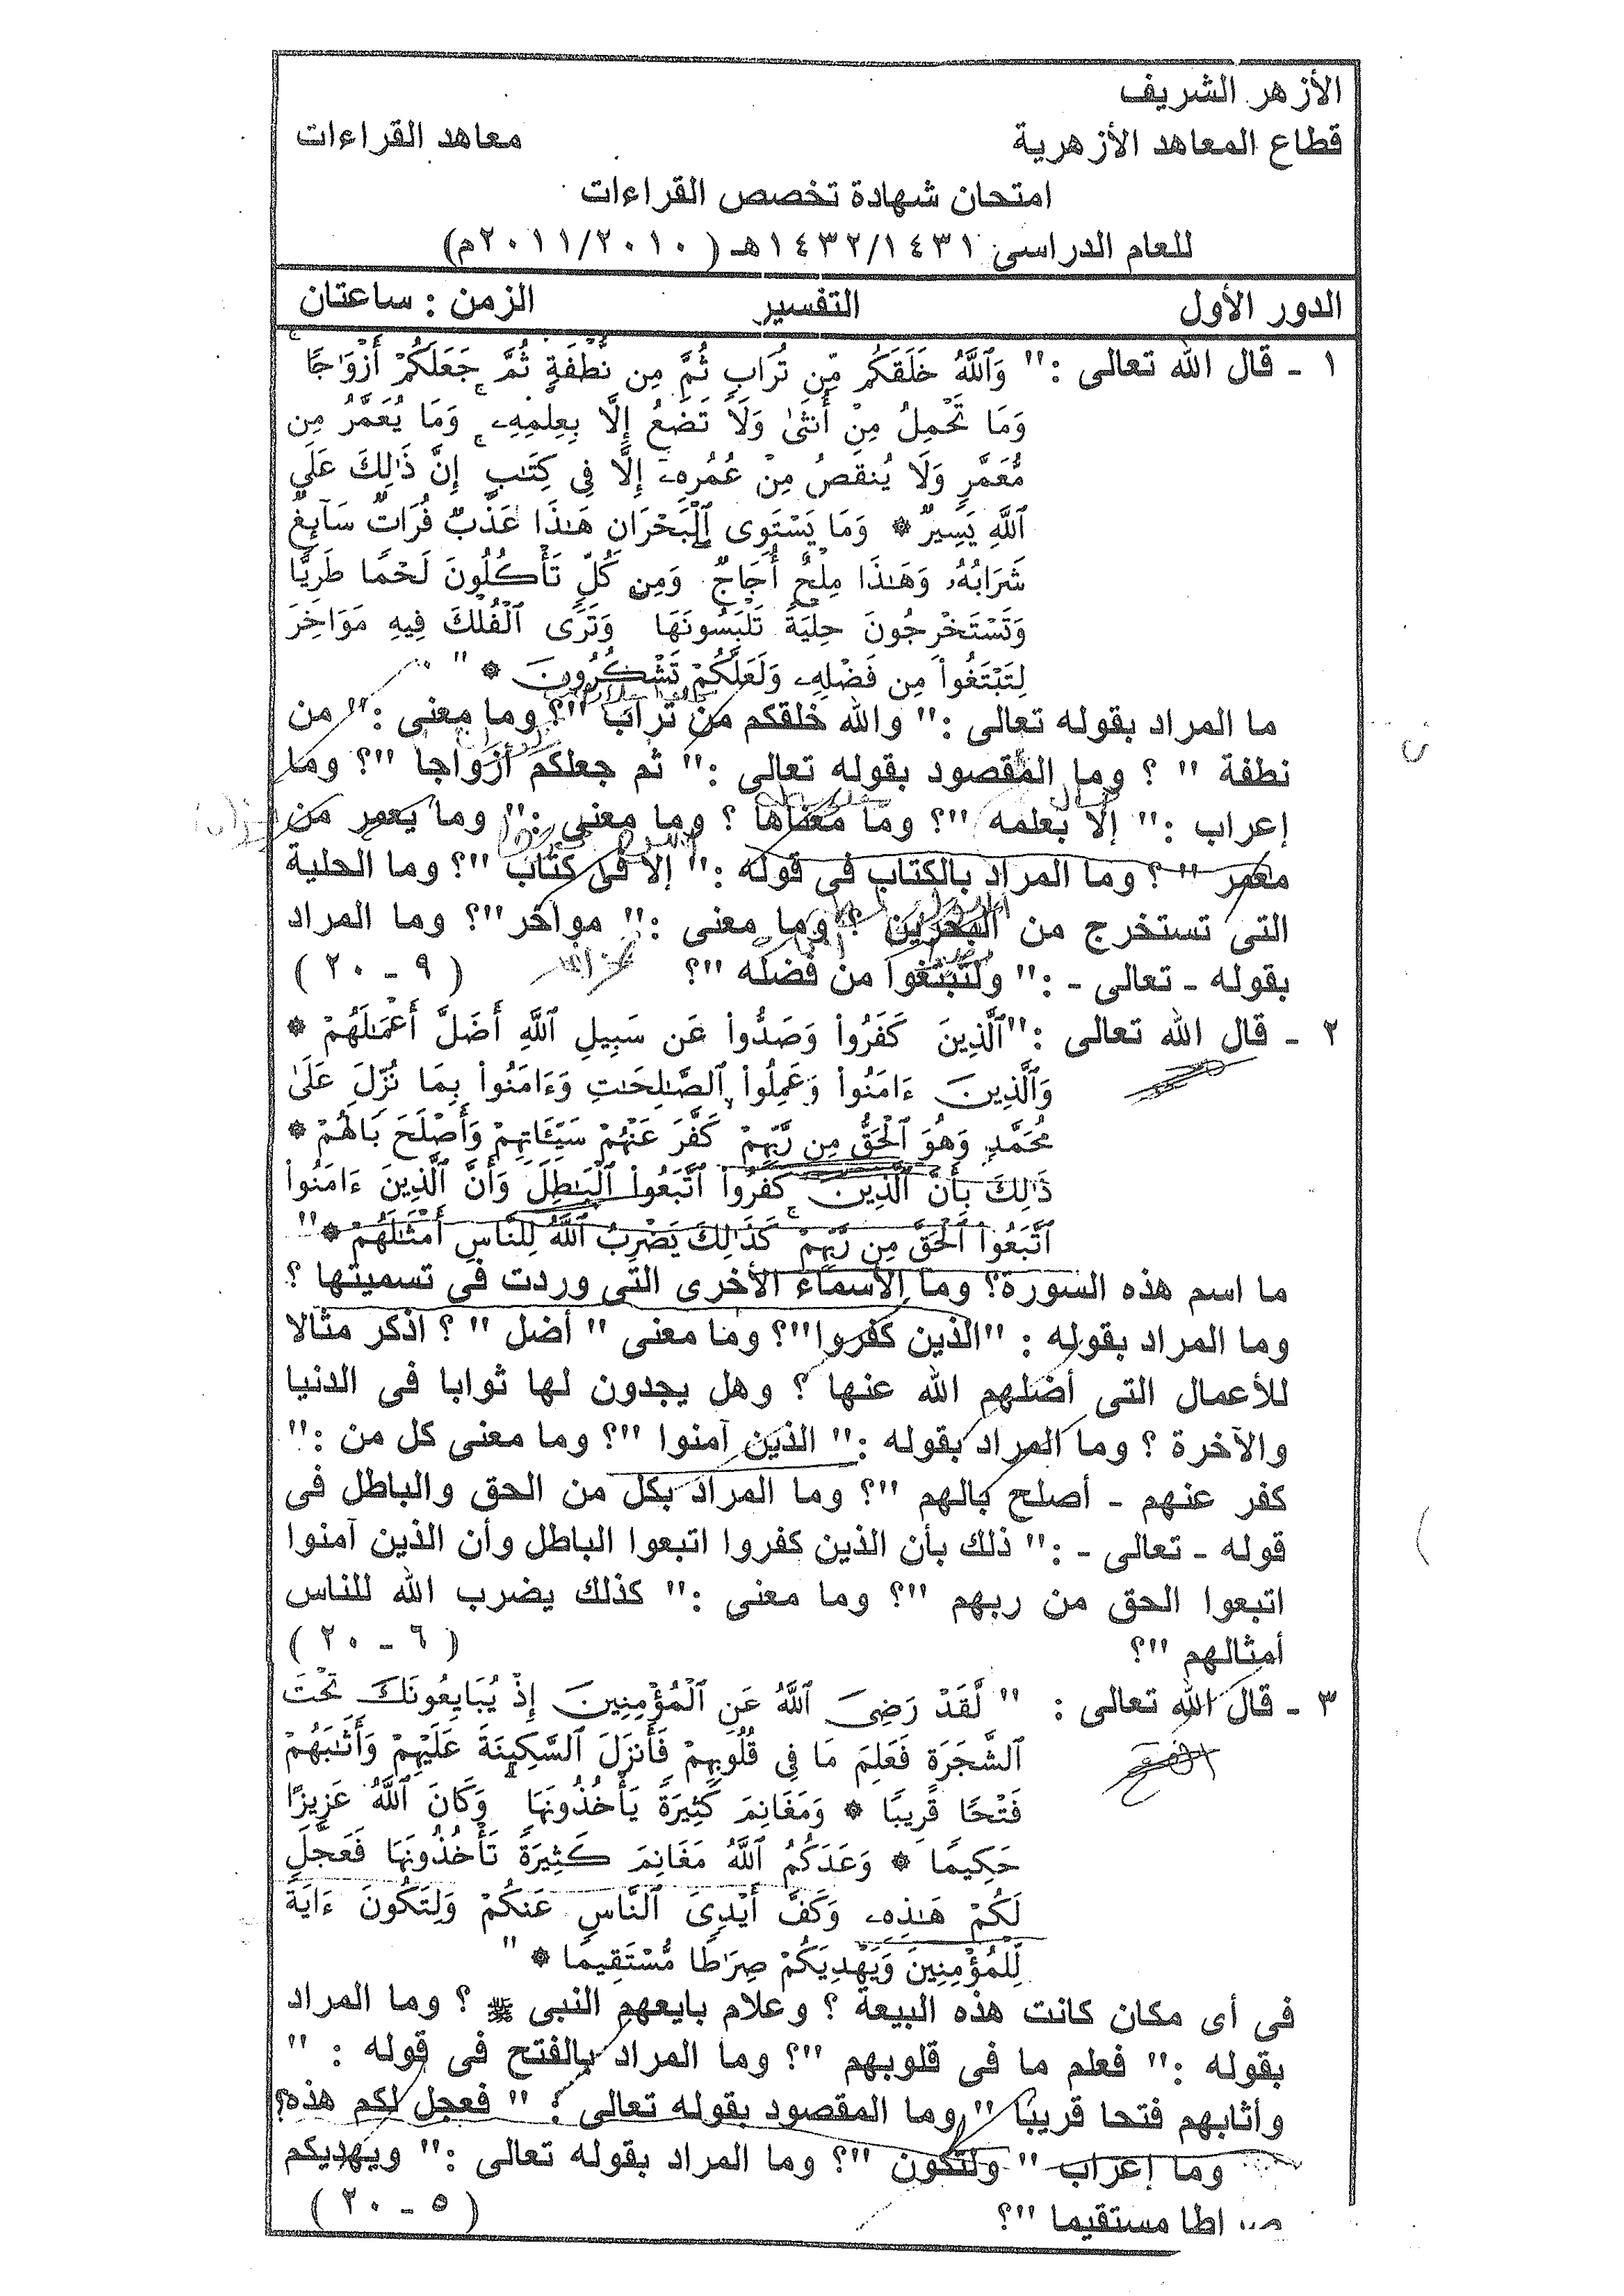 الأزهر الشريف
قطاع المعاهد الأزهرية معاهد القراءات
امتحان شهادة تخصص القراءات
للعام الدراسى ١٤٣٢/١٤٣١هـ ( ٢٠١١/٢٠١٠م)
الدور الأول التفسير الزمن : ساعتان
١ - قال الله تعالى :" وَٱللَّهُ خَلَقَكُم مِّن تُرَابٍ ثُمَّ مِن نُّطْفَةٍ ثُمَّ جَعَلَكُمْ أَزْوَٰجًا ۚ
وَمَا تَحْمِلُ مِنْ أُنثَىٰ وَلَا تَضَعُ إِلَّا بِعِلْمِهِۦ ۚ وَمَا يُعَمَّرُ مِن
مُّعَمَّرٍ وَلَا يُنقَصُ مِنْ عُمُرِهِۦٓ إِلَّا فِى كِتَٰبٍ ۚ إِنَّ ذَٰلِكَ عَلَى
ٱللَّهِ يَسِيرٌ * وَمَا يَسْتَوِى ٱلْبَحْرَانِ هَٰذَا عَذْبٌ فُرَاتٌ سَآئِغٌ
شَرَابُهُۥ وَهَٰذَا مِلْحٌ أُجَاجٌ ۖ وَمِن كُلٍّ تَأْكُلُونَ لَحْمًا طَرِيًّا
وَتَسْتَخْرِجُونَ حِلْيَةً تَلْبَسُونَهَا ۖ وَتَرَى ٱلْفُلْكَ فِيهِ مَوَاخِرَ
لِتَبْتَغُوا۟ مِن فَضْلِهِۦ وَلَعَلَّكُمْ تَشْكُرُونَ * "
ما المراد بقوله تعالى :" والله خلقكم من تراب "؟ وما معنى :" من
نطفة " ؟ وما المقصود بقوله تعالى :" ثم جعلكم أزواجا "؟ وما
إعراب :" إلا بعلمه "؟ وما معناها ؟ وما معنى :" وما يعمر من
معمر " ؟ وما المراد بالكتاب فى قوله :" إلا فى كتاب "؟ وما الحلية
التى تستخرج من البحرين ؟ وما معنى :" مواخر"؟ وما المراد
بقوله - تعالى - :" ولتبتغوا من فضله "؟ ( ٩ - ٢٠ )
٢ - قال الله تعالى :"ٱلَّذِينَ كَفَرُوا۟ وَصَدُّوا۟ عَن سَبِيلِ ٱللَّهِ أَضَلَّ أَعْمَٰلَهُمْ *
وَٱلَّذِينَ ءَامَنُوا۟ وَعَمِلُوا۟ ٱلصَّٰلِحَٰتِ وَءَامَنُوا۟ بِمَا نُزِّلَ عَلَىٰ
مُحَمَّدٍ وَهُوَ ٱلْحَقُّ مِن رَّبِّهِمْ ۙ كَفَّرَ عَنْهُمْ سَيِّـَٔاتِهِمْ وَأَصْلَحَ بَالَهُمْ *
ذَٰلِكَ بِأَنَّ ٱلَّذِينَ كَفَرُوا۟ ٱتَّبَعُوا۟ ٱلْبَٰطِلَ وَأَنَّ ٱلَّذِينَ ءَامَنُوا۟
ٱتَّبَعُوا۟ ٱلْحَقَّ مِن رَّبِّهِمْ ۚ كَذَٰلِكَ يَضْرِبُ ٱللَّهُ لِلنَّاسِ أَمْثَٰلَهُمْ * "
ما اسم هذه السورة؟ وما الأسماء الأخرى التى وردت فى تسميتها ؟
وما المراد بقوله : "الذين كفروا"؟ وما معنى " أضل " ؟ اذكر مثالا
للأعمال التى أضلهم الله عنها ؟ وهل يجدون لها ثوابا فى الدنيا
والآخرة ؟ وما المراد بقوله :" الذين آمنوا "؟ وما معنى كل من :"
كفر عنهم - أصلح بالهم "؟ وما المراد بكل من الحق والباطل فى
قوله - تعالى - :" ذلك بأن الذين كفروا اتبعوا الباطل وأن الذين آمنوا
اتبعوا الحق من ربهم "؟ وما معنى :" كذلك يضرب الله للناس
أمثالهم "؟ ( ٦ - ٢٠ )
٣ - قال الله تعالى : " لَّقَدْ رَضِىَ ٱللَّهُ عَنِ ٱلْمُؤْمِنِينَ إِذْ يُبَايِعُونَكَ تَحْتَ
ٱلشَّجَرَةِ فَعَلِمَ مَا فِى قُلُوبِهِمْ فَأَنزَلَ ٱلسَّكِينَةَ عَلَيْهِمْ وَأَثَٰبَهُمْ
الفتح
فَتْحًا قَرِيبًا * وَمَغَانِمَ كَثِيرَةً يَأْخُذُونَهَا ۗ وَكَانَ ٱللَّهُ عَزِيزًا
حَكِيمًا * وَعَدَكُمُ ٱللَّهُ مَغَانِمَ كَثِيرَةً تَأْخُذُونَهَا فَعَجَّلَ
لَكُمْ هَٰذِهِۦ وَكَفَّ أَيْدِىَ ٱلنَّاسِ عَنكُمْ وَلِتَكُونَ ءَايَةً
لِّلْمُؤْمِنِينَ وَيَهْدِيَكُمْ صِرَٰطًا مُّسْتَقِيمًا * "
فى أى مكان كانت هذه البيعة ؟ وعلام بايعهم النبى ﷺ ؟ وما المراد
بقوله :" فعلم ما فى قلوبهم "؟ وما المراد بالفتح فى قوله : "
وأثابهم فتحا قريبا " وما المقصود بقوله تعالى : " فعجل لكم هذه؟
وما إعراب " ولتكون "؟ وما المراد بقوله تعالى :" ويهديكم
اطا مستقيما "؟ ( ٥ - ٢٠ )